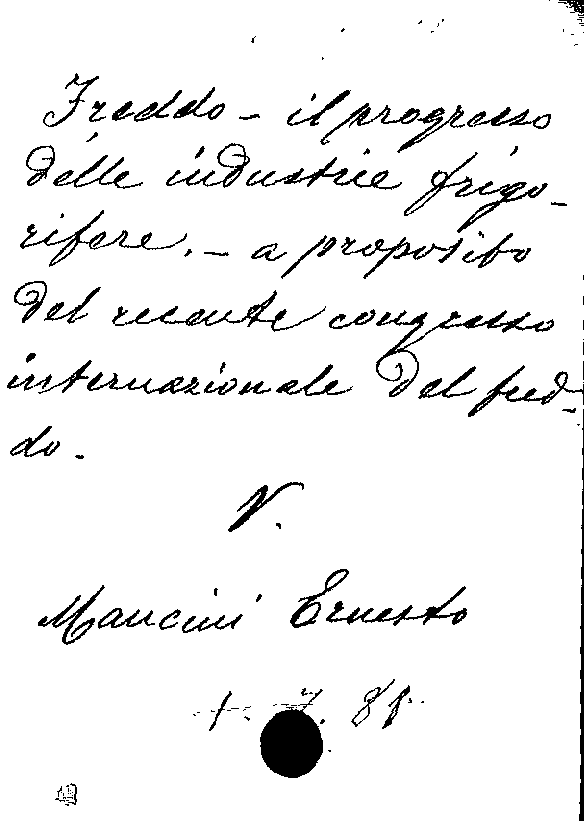 Freddo - il progresso
delle industrie frigo-
rifere. - a proposito
del recente congresso
internazionale del fred-
do.
V.
Mancini Ernesto
1. 7. 81